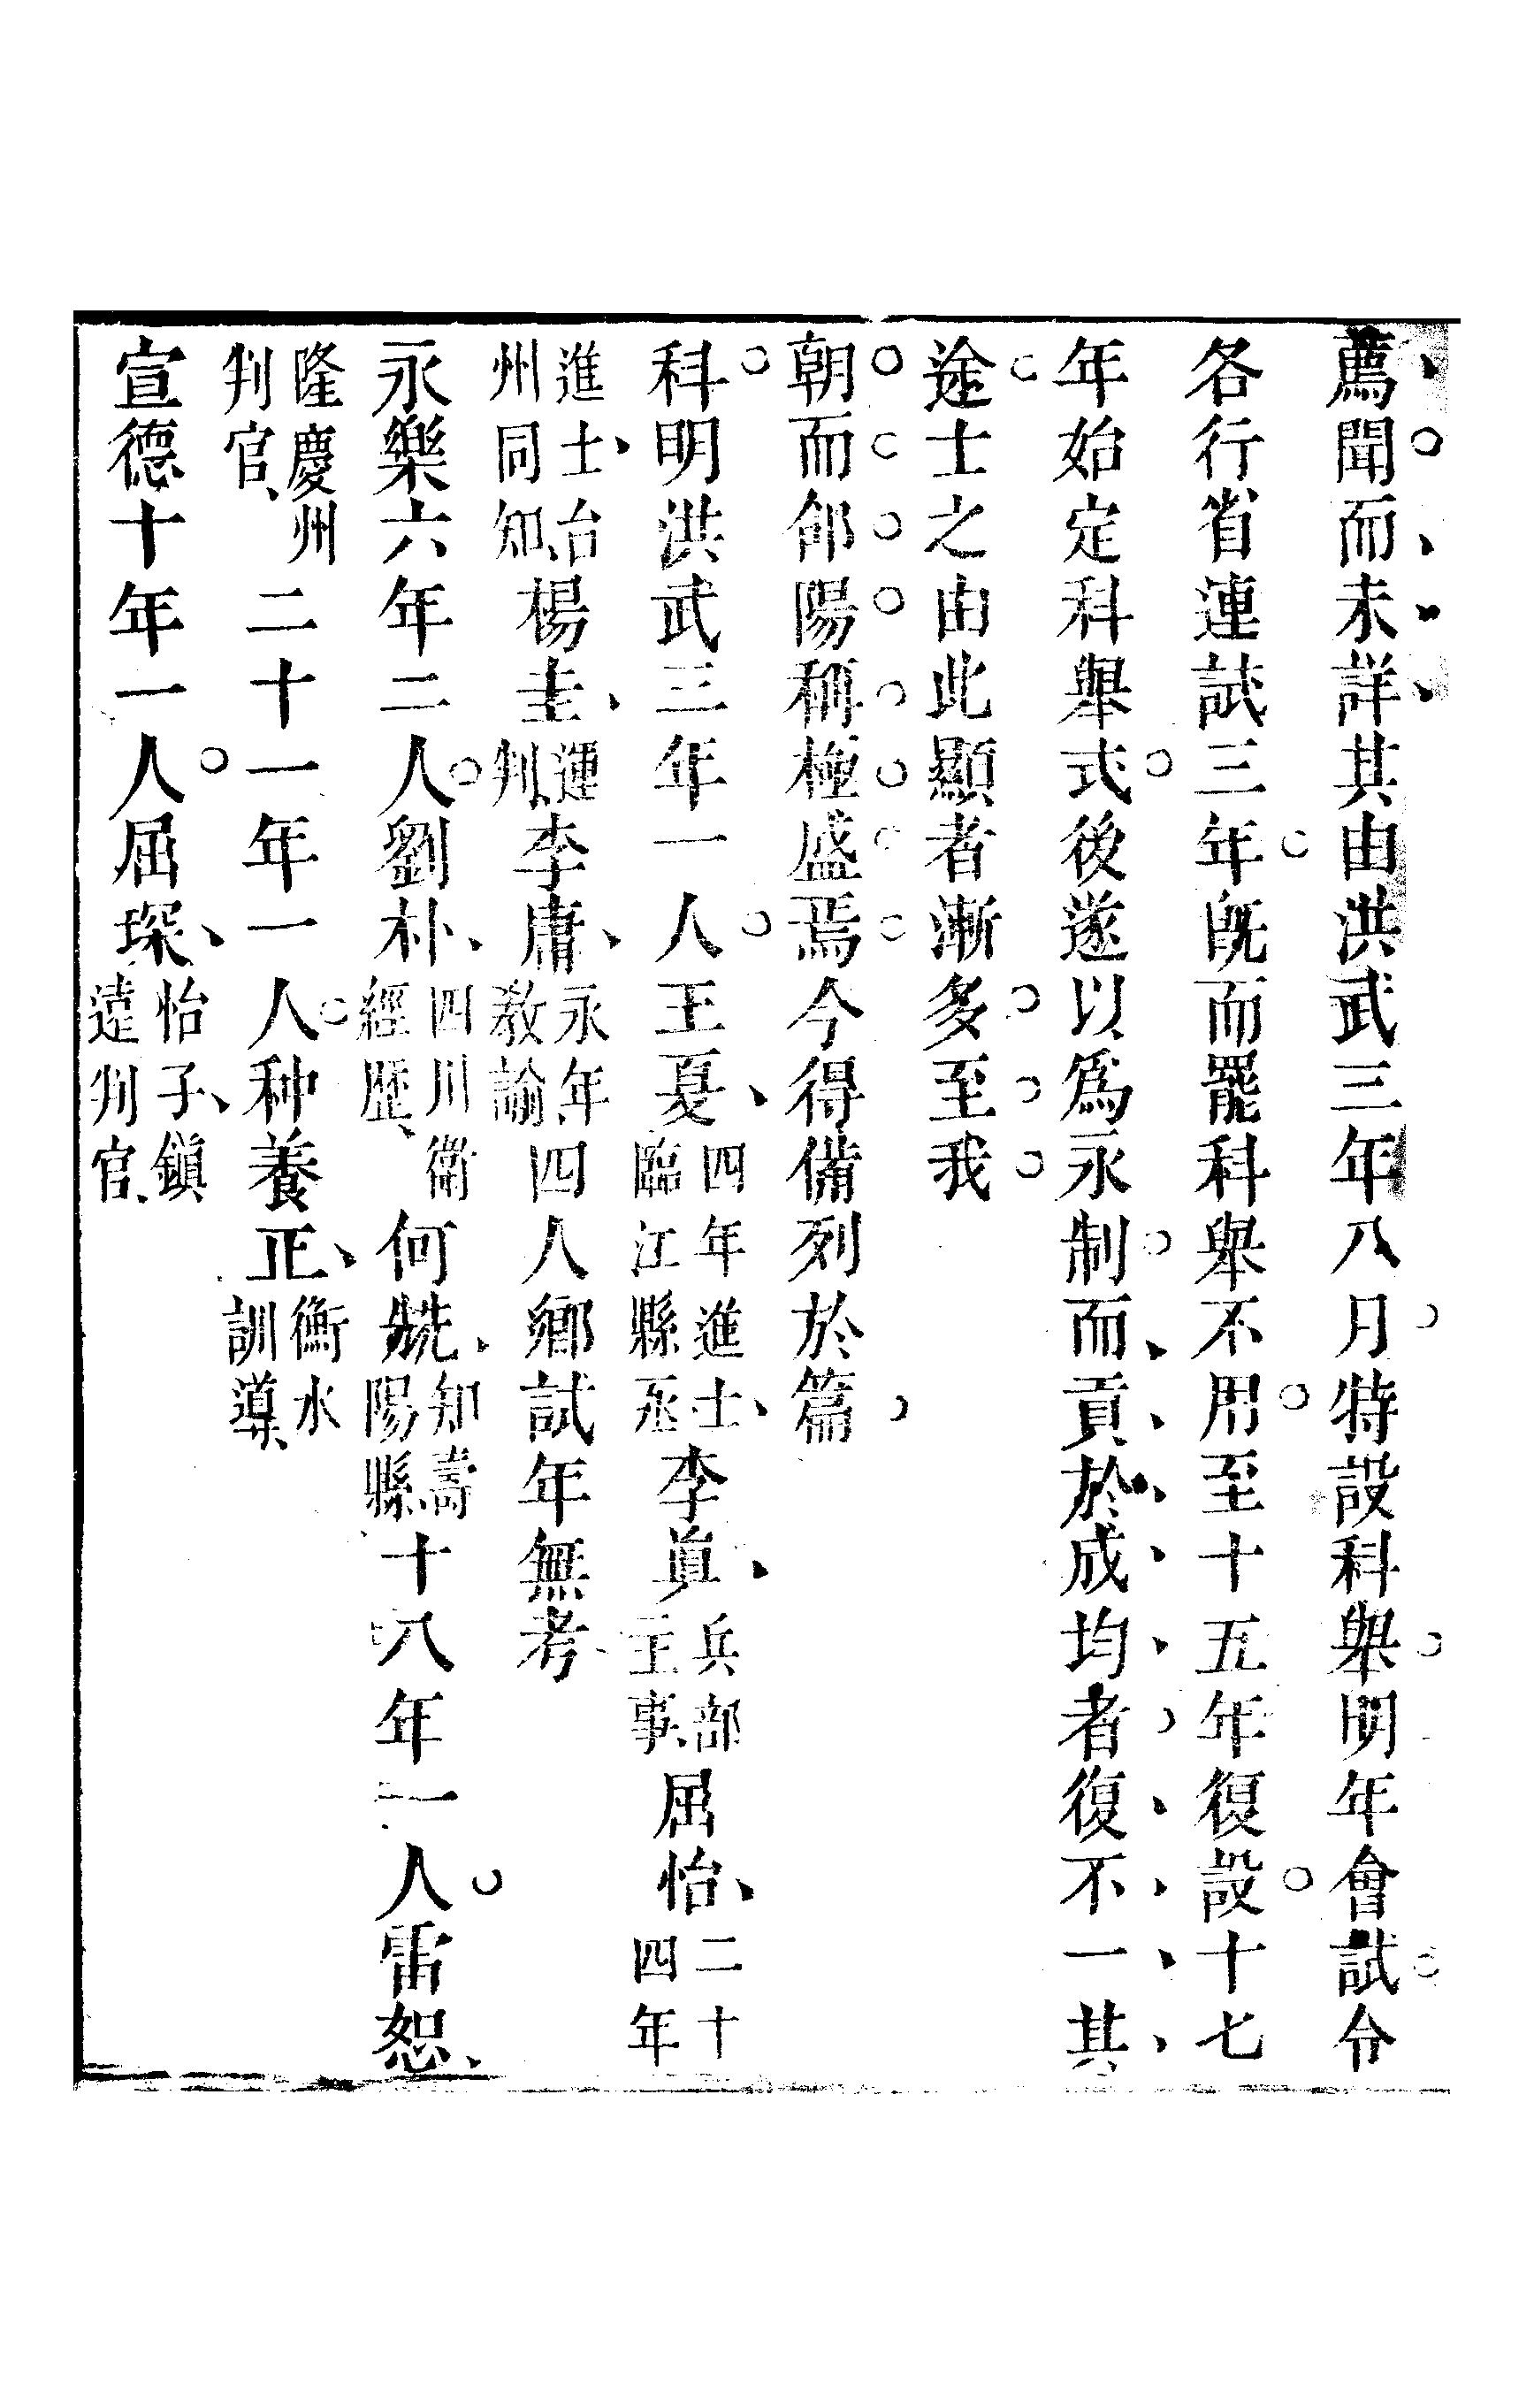 薦聞而未詳其由洪武三年八月特設科舉明年會試令
各行省連試三年旣而罷科舉不用至十五年復設十七
年始定科舉式後遂以爲永制而貢於成均者復不一其
途士之由此顯者漸多至我
朝而郃陽稱極盛焉今得備列於篇
科明洪武三年一人王夏四年進士臨江縣丞李眞兵部主事屈怡二十四年
進士台州同知楊圭運判李庸永年教諭四人鄉試年無考
永樂六年二人劉朴四川衛經歷何兟知壽陽縣十八年一人雷恕
隆慶州判官二十一年一人种養正衡水訓導
宣德十年一人屈琛怡子鎭遠判官